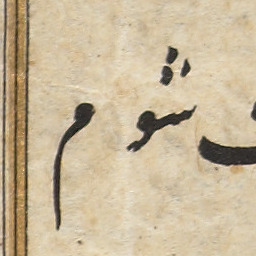 شوم